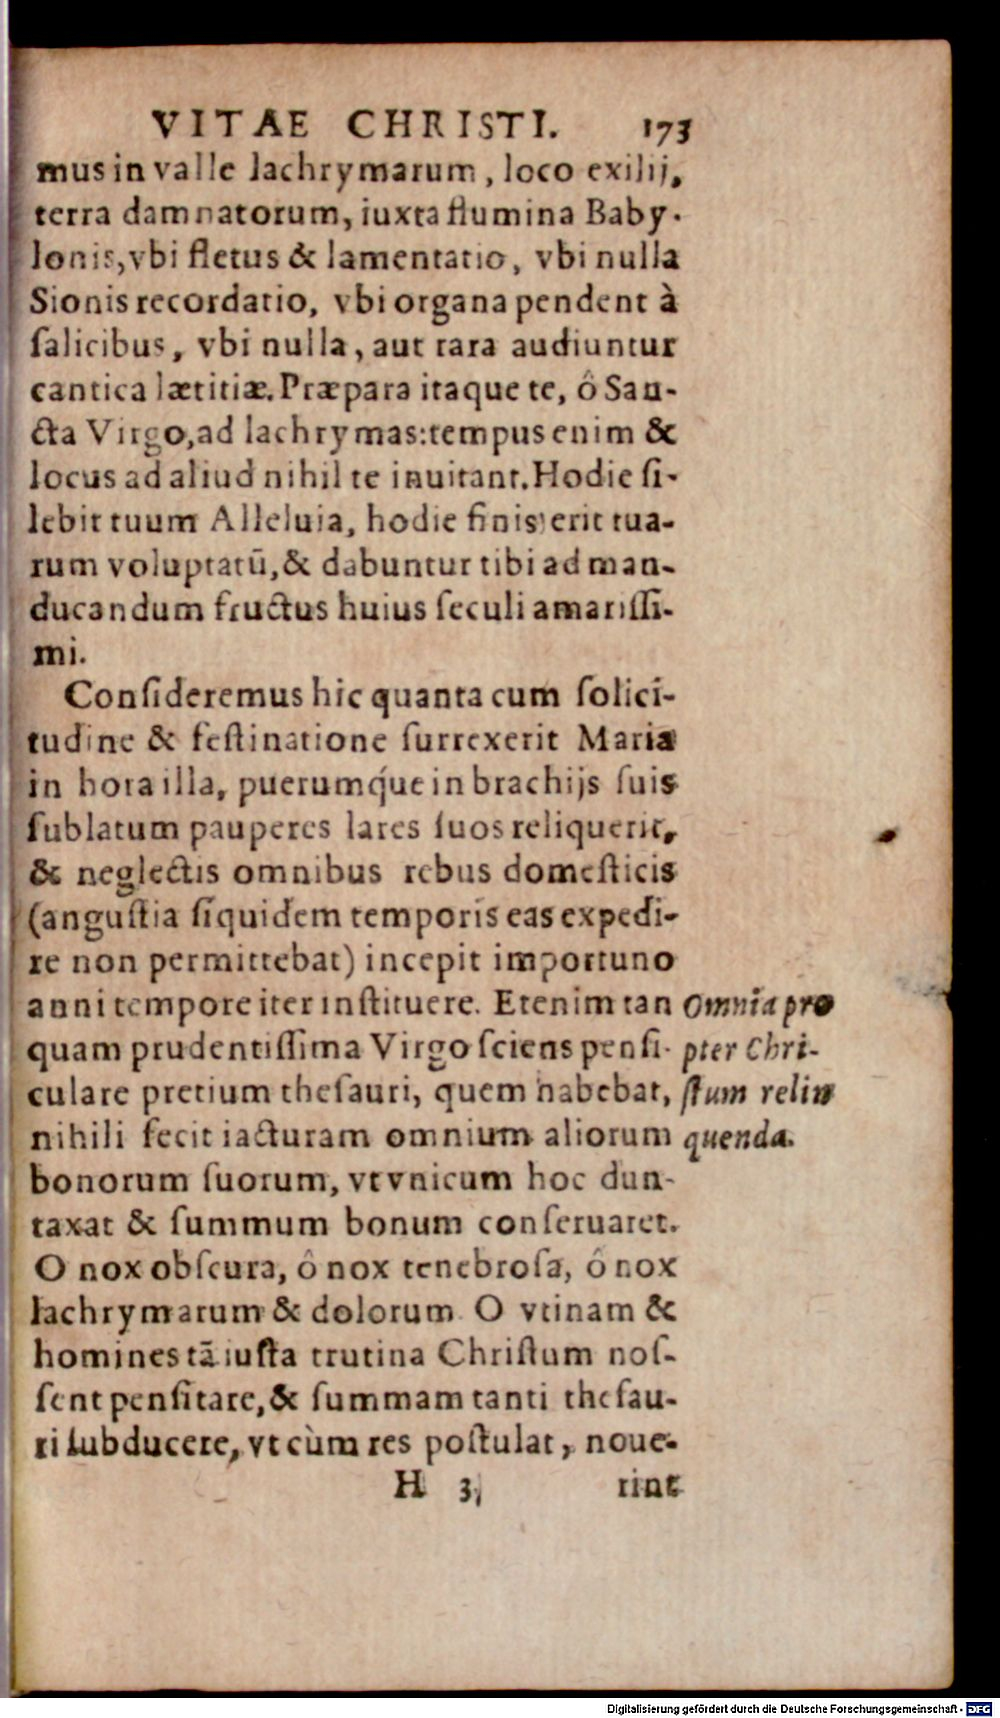 VITAE CHRISTI. 173
mus in valle lachrymarum, loco exilij,
terra damnatorum, iuxta flumina Baby-
lonis, vbi fletus & lamentatio, vbi nulla
Sionis recordatio, vbi organa pendent à
ſalicibus, vbi nulla, aut rara audiuntur
cantica lætitiæ. Præpara itaque te, ô San-
cta Virgo, ad lachrymas: tempus enim &
locus ad aliud nihil te inuitant. Hodie ſi-
lebit tuum Alleluia, hodie finis erit tua-
rum voluptatũ, & dabuntur tibi ad man-
ducandum fructus huius ſeculi amariſſi-
mi.
Conſideremus hic quanta cum ſolici-
tudine & feſtinatione ſurrexerit Maria
in hora illa, puerumq́ue in brachijs ſuis
ſublatum pauperes lares ſuos reliquerit,
& neglectis omnibus rebus domeſticis
(anguſtia ſiquidem temporis eas expedi-
re non permittebat) incepit importuno
anni tempore iter inſtituere. Etenim tan
quam prudentiſſima Virgo ſciens penſi-
culare pretium theſauri, quem habebat,
nihili fecit iacturam omnium aliorum
bonorum ſuorum, vt vnicum hoc dun-
taxat & ſummum bonum conſeruaret.
O nox obſcura, ô nox tenebroſa, ô nox
lachrymarum & dolorum. O vtinam &
homines tã iuſta trutina Chriſtum noſ-
ſent penſitare, & ſummam tanti theſau-
ri ſubducere, vt cùm res poſtulat, noue-
H 3 rint
Omnia pro
pter Chri-
ſtum relin
quenda.
Digitalisierung gefördert durch die Deutsche Forschungsgemeinschaft - DFG